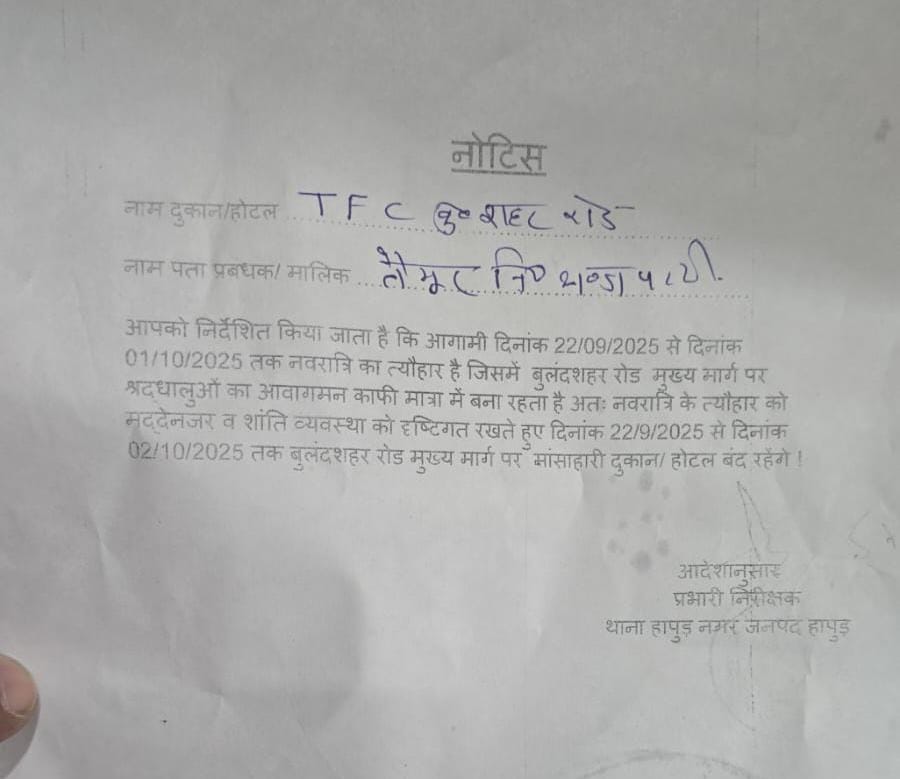 नोटिस
नाम दुकान/होटल ... T F C बु० शहर रोड
नाम पता प्रबधक/ मालिक .... तैमूर नि०
आपको निर्देशित किया जाता है कि आगामी दिनांक 22/09/2025 से दिनांक
01/10/2025 तक नवरात्रि का त्यौहार है जिसमें बुलंदशहर रोड मुख्य मार्ग पर
श्रद्धालुओं का आवागमन काफी मात्रा में बना रहता है अतः नवरात्रि के त्यौहार को
मद्देनजर व शांति व्यवस्था को दृष्टिगत रखते हुए दिनांक 22/9/2025 से दिनांक
02/10/2025 तक बुलंदशहर रोड मुख्य मार्ग पर मांसाहारी दुकान/ होटल बंद रहेंगे !
आदेशानुसार
प्रभारी निरीक्षक
थाना हापुड़ नगर जनपद हापुड़